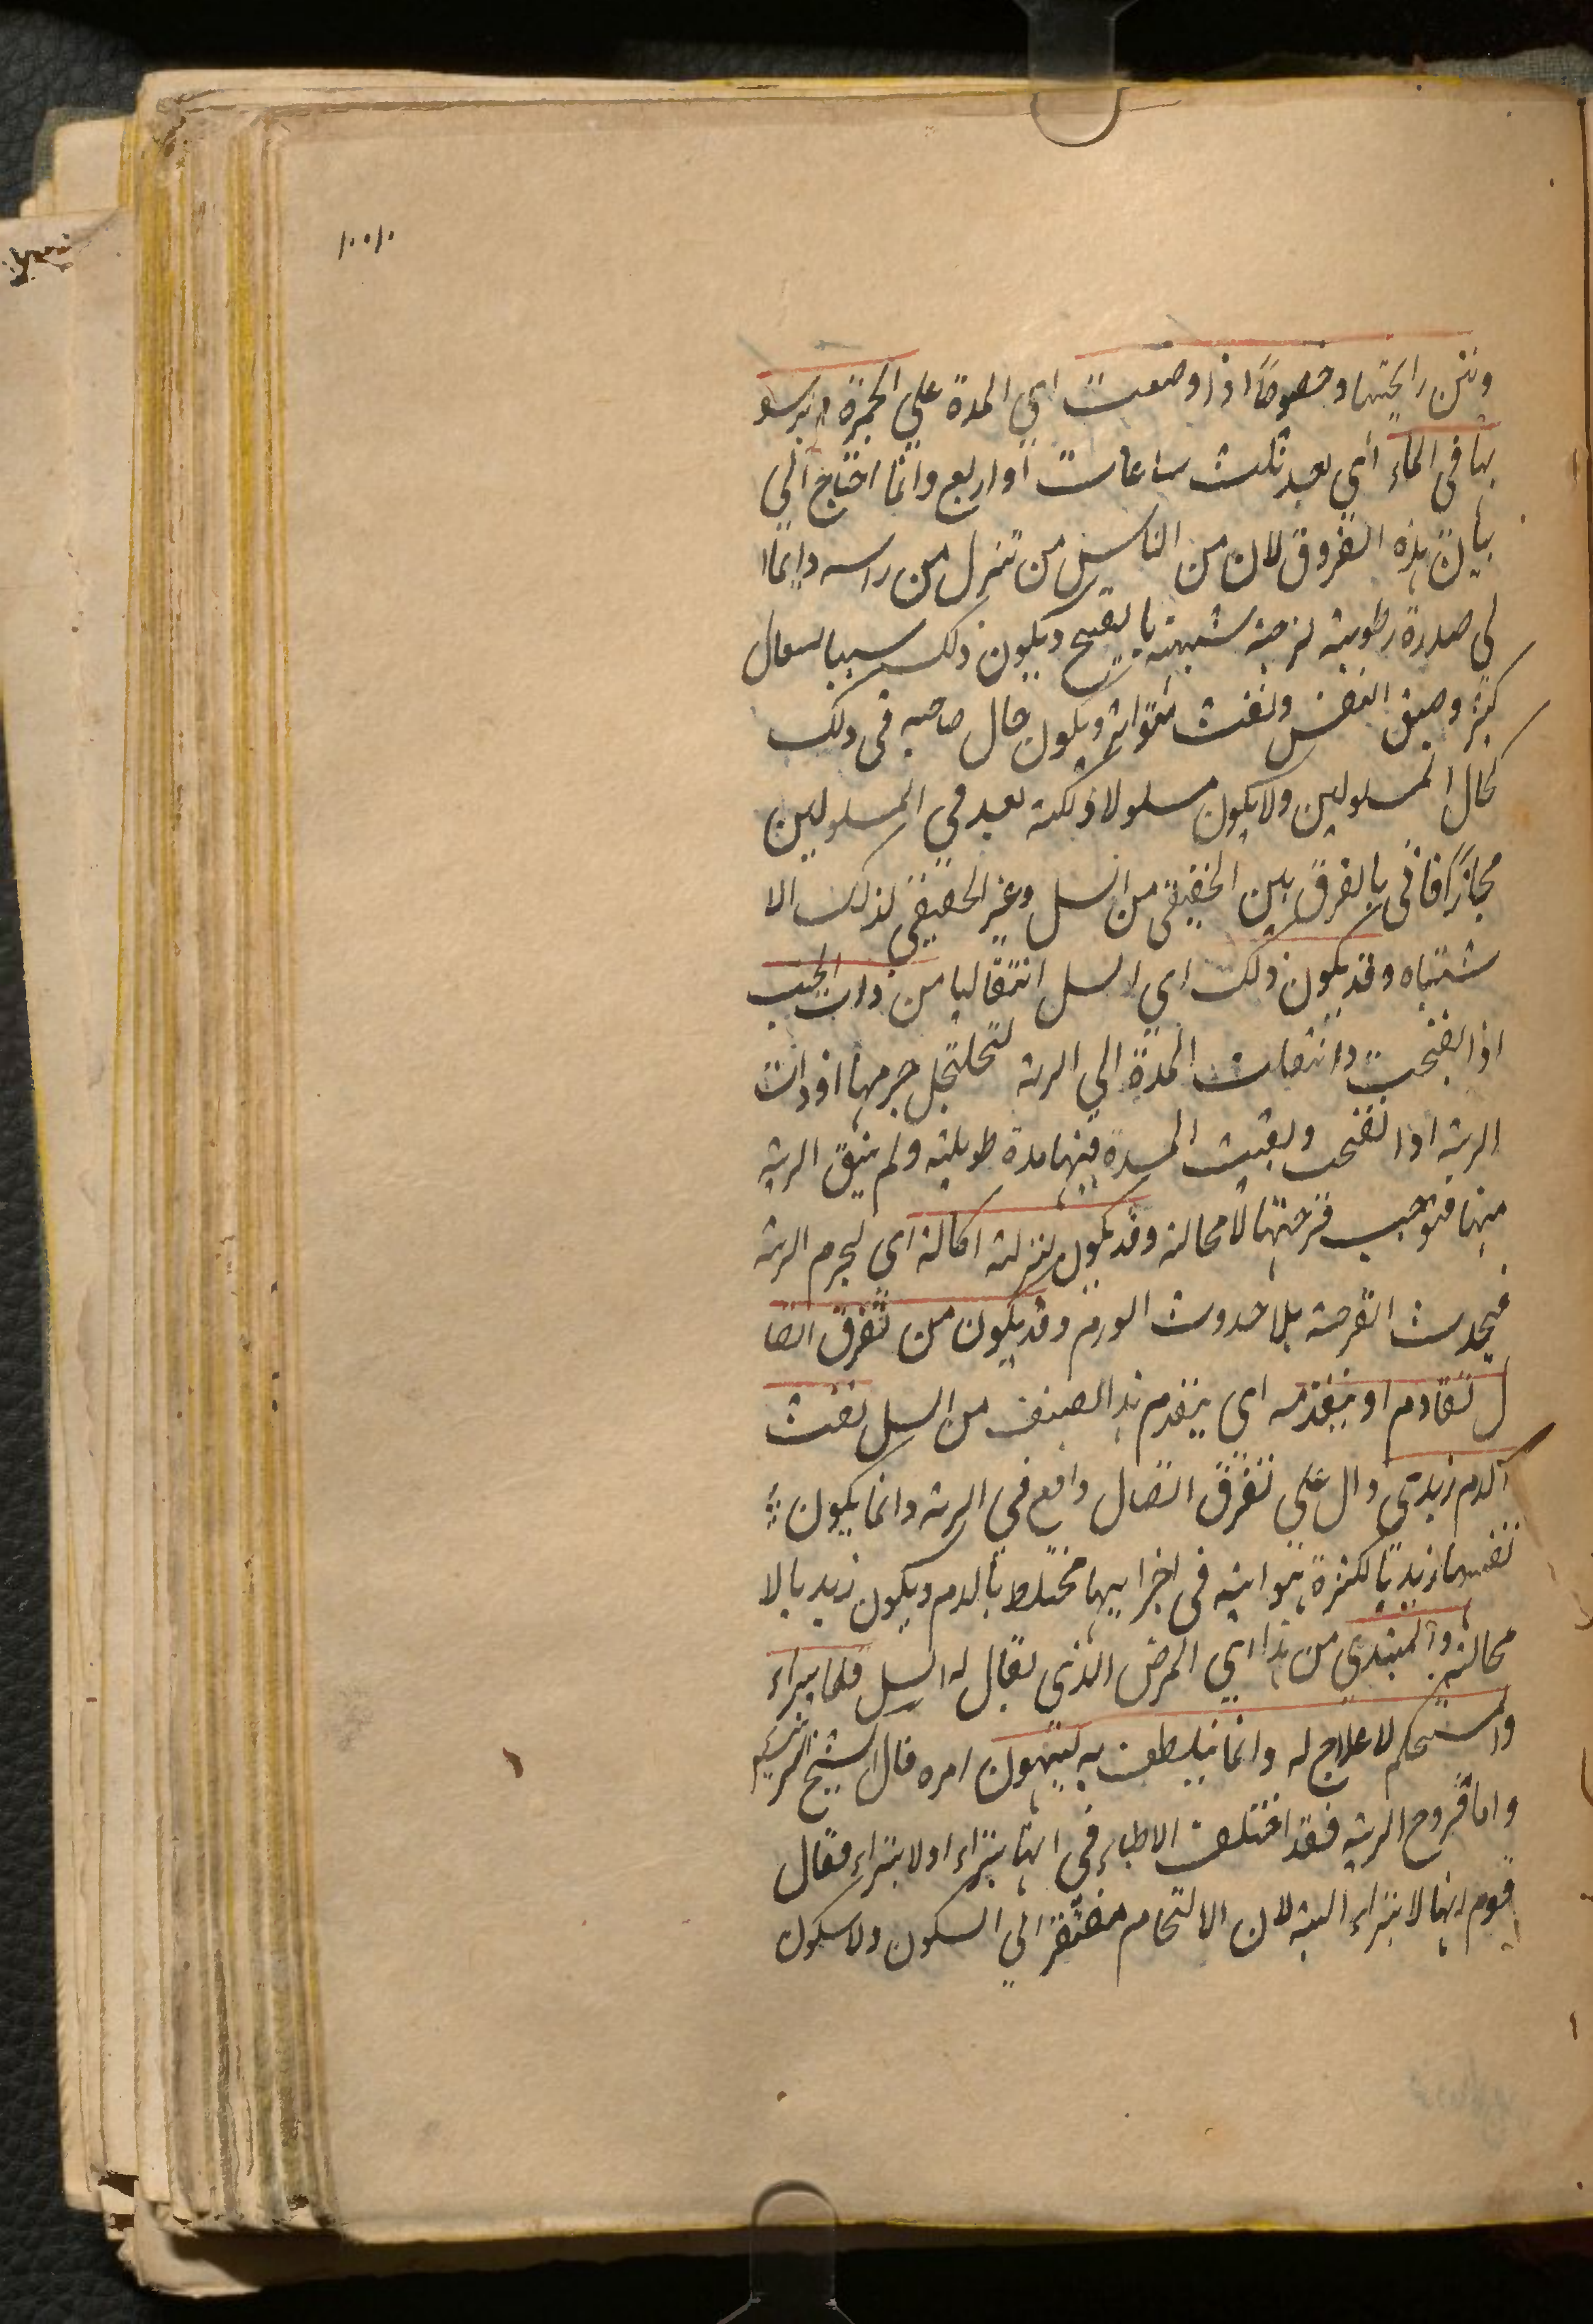 ونتن رايحتها وخصوصًا اذا وضعت اي المدة علي الجمرة وبرسو
بها في الماء اي بعد ثلث ساعات او اربع وانما احتاج الي
بيان هذه الفروق لان من الناس من تنزل من راسه دايمًا ا
لي صدره رطوبة لزجة شبيهة بالقيح ويكون ذلك سببا لسعال
كثير وضيق النفس ونفث متواتر ويكون حال صاحبه في ذلك
كحال المسلولين ولا يكون مسلولا ولكنه يعد في المسلولين
مجازًا بالفرق بين الحقيقي من السل وغير الحقيقي لذلك الا
شتباه وقد يكون ذلك اي السل انتقاليا من ذات الجنب
اذا انفتحت وانتقلت المدة الي الرية لتخلخل جرمها او ذات
الرية اذا انفتحت وبقيت المدة فيها مدة طويلة ولم ينق الرية
منها فتوجب قرحتها لا محالة وقد يكون لنزلة اكالة اي لجرم الرية
فيحدث القرحة بلا حدوث الورم وقد يكون من تفرق اتصا
ل تقادم او يتقدمه اي يتقدم هذا الصنف من السل نفث
الدم زبدي دال علي تفرق اتصال واقع في الرية وانما يكون
نفسها زبديا لكثرة هوائية في اجزائها مختلط بالدم ويكون زبديا لا
محالة والمبتدي من هذا اي المرض الذي يقال له السل قلما يبراء
والمستحكم لا علاج له وانما يتلطف به ليتهون امره قال الشيخ الرئيس
واما قروح الرية فقد اختلف الاطباء في انها تبراء او لا تبراء فقال
قوم انها لا تبراء البتة لان الالتحام مفتقر الي السكون ولا سكون